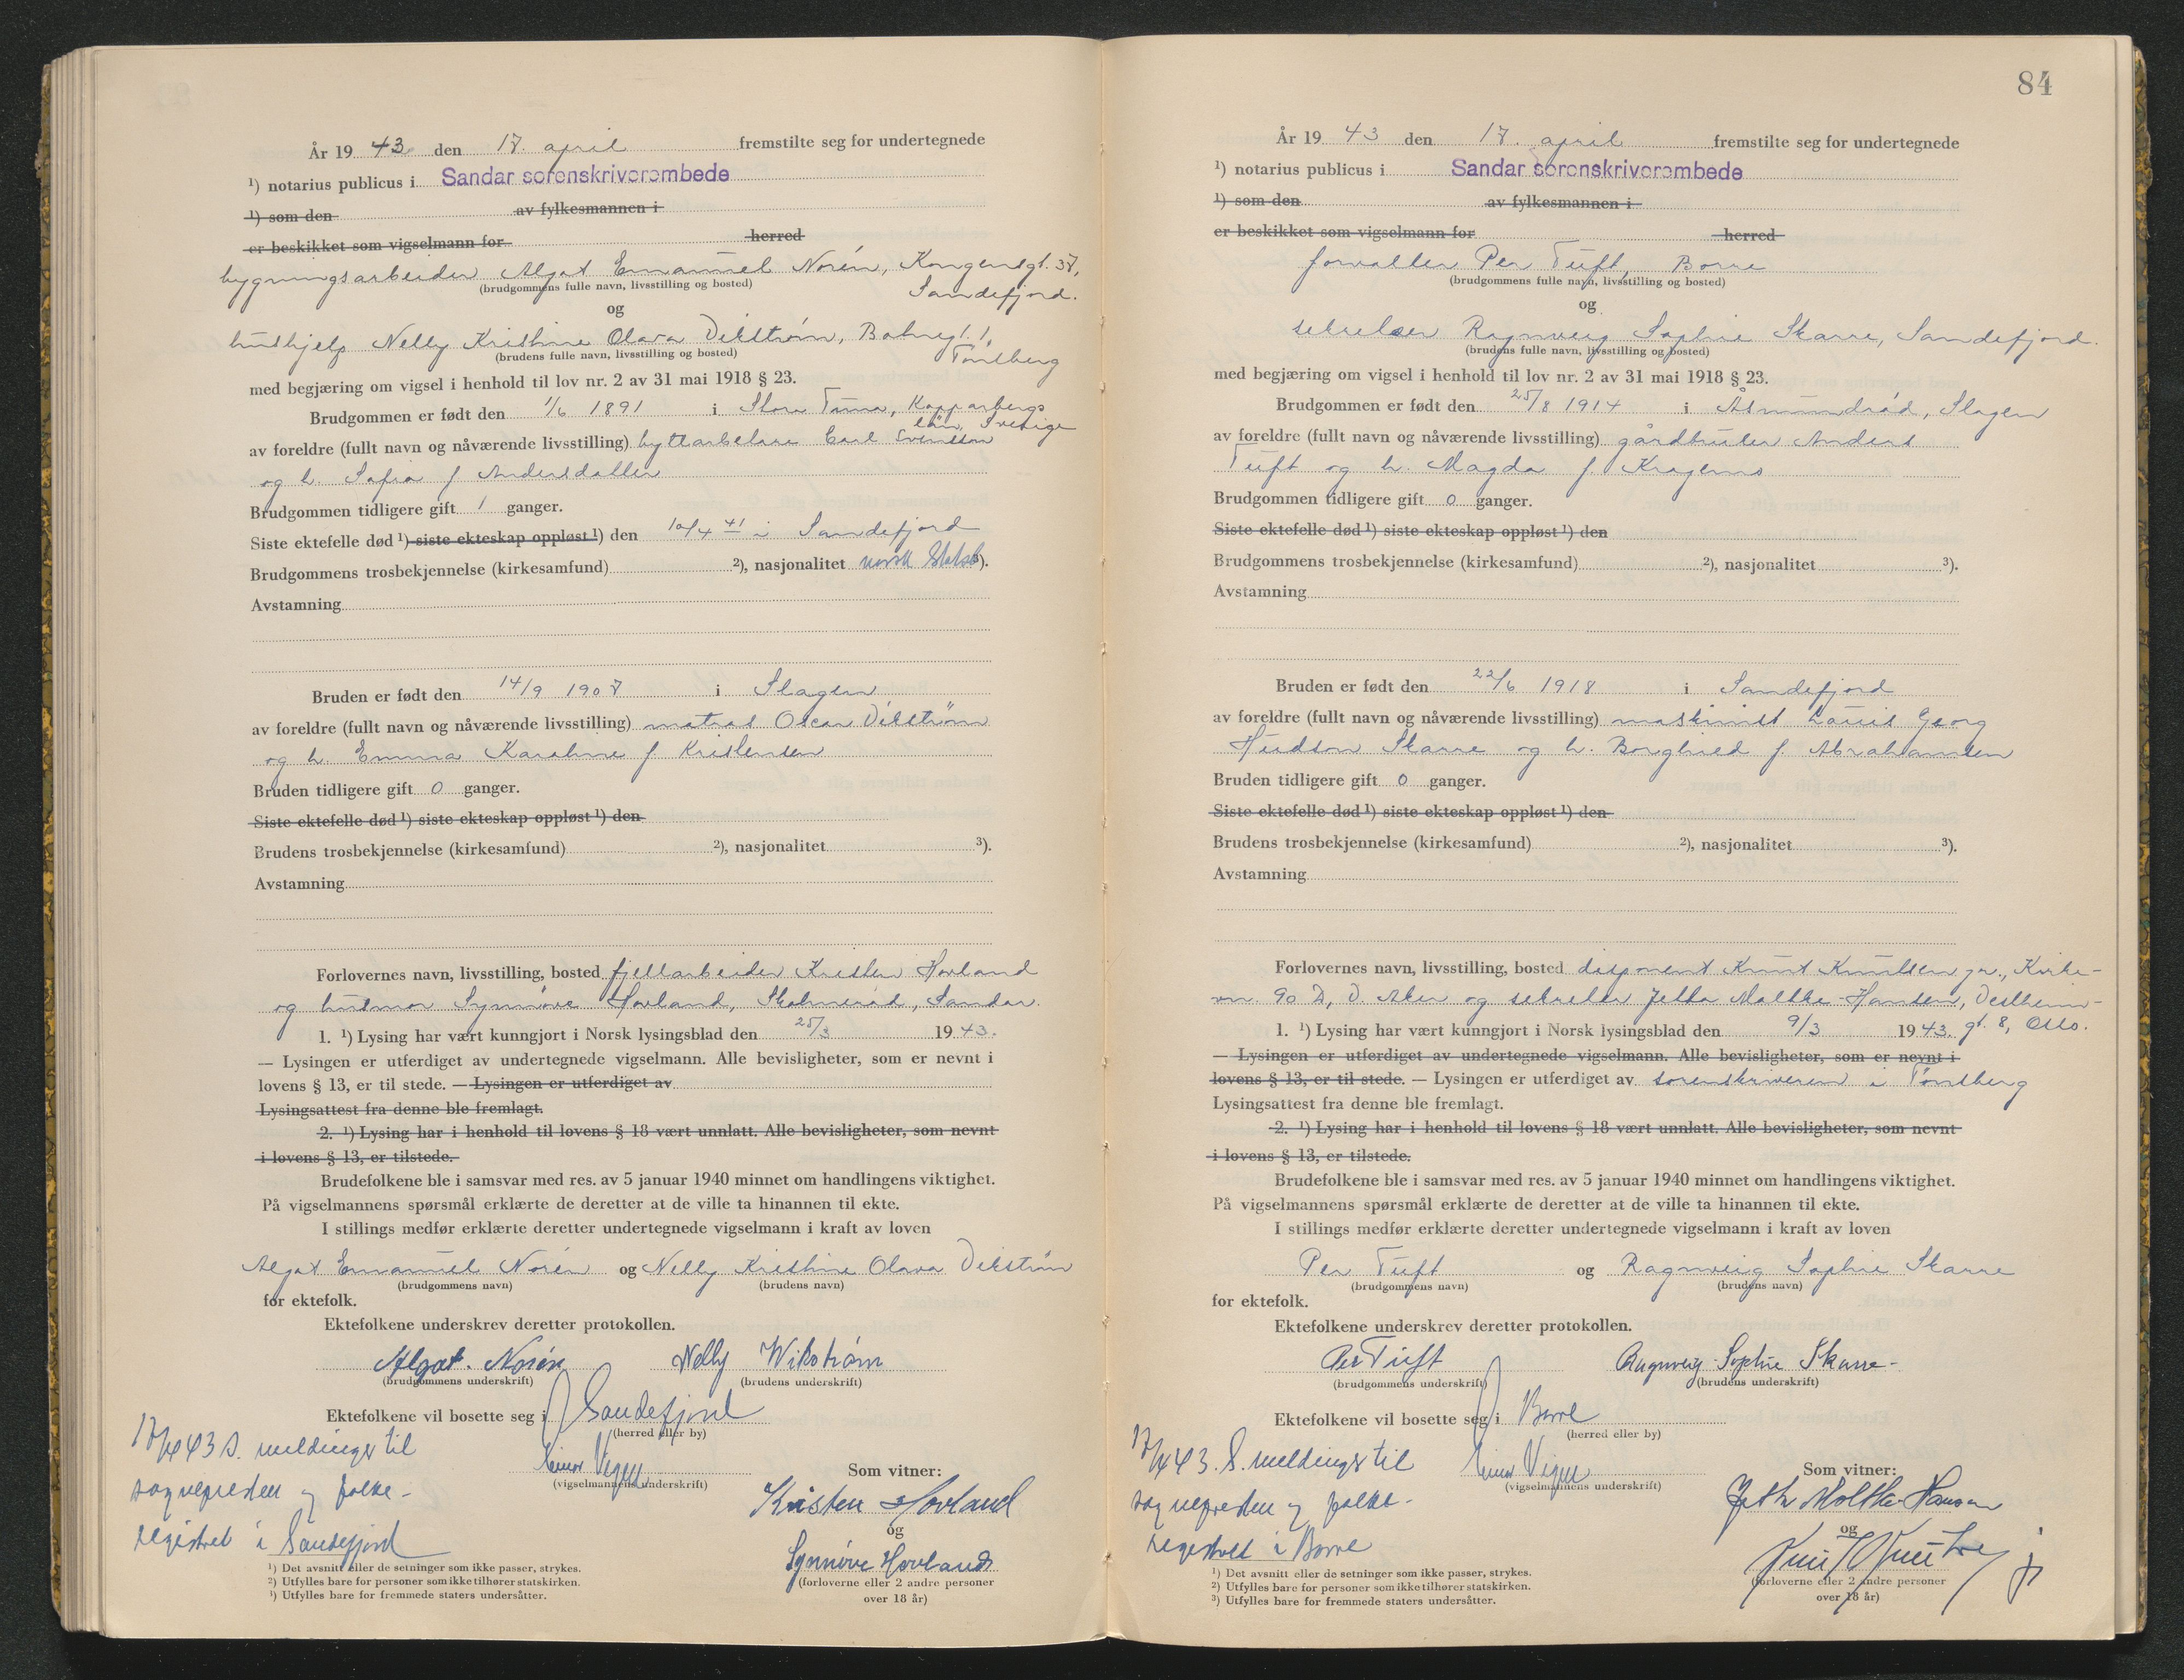 År 19 43 den 17. april fremstilte seg for undertegnede
¹) notarius publicus i Sandar sorenskriverembede
¹) som den av fylkesmannen i
er beskikket som vigselmann for herred
bygningsarbeider Algot Emanuel Norén, Kongensgt. 37,
(brudgommens fulle navn, livsstilling og bosted)
Sandefjord.
og
hushjelp Nelly Kristine Olava Vikstrøm,
(brudens fulle navn, livsstilling og bosted)
Tønsberg
med begjæring om vigsel i henhold til lov nr. 2 av 31 mai 1918 § 23.
Brudgommen er født den 1/6 1891 i Stora Tuna, Kopparbergs
län, Sverige
av foreldre (fullt navn og nåværende livsstilling) hyttarbetare Carl Svensson
og h. Sofia f. Andersdotter
Brudgommen tidligere gift 1 ganger.
Siste ektefelle død ¹) siste ekteskap oppløst ¹) den 10/4 41 i Sandefjord
Brudgommens trosbekjennelse (kirkesamfund) ²), nasjonalitet norsk Statsb ³).
Avstamning
Bruden er født den 14/9 1907 i Slagen
av foreldre (fullt navn og nåværende livsstilling) matros Oscar Vikstrøm
og h. Emma Karoline f. Kristensen
Bruden tidligere gift 0 ganger.
Siste ektefelle død ¹) siste ekteskap oppløst ¹) den
Brudens trosbekjennelse (kirkesamfund) ²), nasjonalitet ³).
Avstamning
Forlovernes navn, livsstilling, bosted fjellarbeider Kristen Hovland
og husmor Synnøve Hovland, Sandar.
1. ¹) Lysing har vært kunngjort i Norsk lysingsblad den 25/3 19 43.
— Lysingen er utferdiget av undertegnede vigselmann. Alle bevisligheter, som er nevnt i
lovens § 13, er til stede. — Lysingen er utferdiget av
Lysingsattest fra denne ble fremlagt.
2. ¹) Lysing har i henhold til lovens § 18 vært unnlatt. Alle bevisligheter, som nevnt
i lovens § 13, er tilstede.
Brudefolkene ble i samsvar med res. av 5 januar 1940 minnet om handlingens viktighet.
På vigselmannens spørsmål erklærte de deretter at de ville ta hinannen til ekte.
I stillings medfør erklærte deretter undertegnede vigselmann i kraft av loven
Algot Emanuel Norén og Nelly Kristine Olava Vikstrøm
(brudgommens navn) (brudens navn)
for ektefolk.
Ektefolkene underskrev deretter protokollen.
Algot. Norén Nelly Wikstrøm
(brudgommens underskrift) (brudens underskrift)
Ektefolkene vil bosette seg i Sandefjord
(herred eller by)
17/4 43 S. meldinger til
sognepresten og folke-
registret i Sandefjord
Einar Vigen
(vigselmannens underskrift)
Som vitner:
Kristen Hovland
og
Synnøve Hovland
(forloverne eller 2 andre personer
over 18 år)
¹) Det avsnitt eller de setninger som ikke passer, strykes.
²) Utfylles bare for personer som ikke tilhører statskirken.
¹) Utfylles bare for fremmede staters undersåtter.
84
År 19 43 den 17. april fremstilte seg for undertegnede
¹) notarius publicus i Sandar sorenskriverembede
¹) som den av fylkesmannen i
er beskikket som vigselmann for herred
forvalter Per Tuft, Borre
(brudgommens fulle navn, livsstilling og bosted)
og
sekretær Ragnveig Sophie Skarre, Sandefjord.
(brudens fulle navn, livsstilling og bosted)
med begjæring om vigsel i henhold til lov nr. 2 av 31 mai 1918 § 23.
Brudgommen er født den 25/8 1914 i Åsmundrød, Slagen
av foreldre (fullt navn og nåværende livsstilling) gårdbruker Anders
Tuft og h. Magda f.
Brudgommen tidligere gift 0 ganger.
Siste ektefelle død ¹) siste ekteskap oppløst ¹) den
Brudgommens trosbekjennelse (kirkesamfund) ²), nasjonalitet ³).
Avstamning
Bruden er født den 22/6 1918 i Sandefjord
av foreldre (fullt navn og nåværende livsstilling) maskinist Louis Georg
Hudson Skarre og h. Borghild f. Abrahamsen
Bruden tidligere gift 0 ganger.
Siste ektefelle død ¹) siste ekteskap oppløst ¹) den
Brudens trosbekjennelse (kirkesamfund) ²), nasjonalitet ³).
Avstamning
Forlovernes navn, livsstilling, bosted disponent Knut Knutsen jr., Kirke-
vn. 90 D, V. Aker og sekretær Jetta Moltke-Hansen, Vestheim-
1. ¹) Lysing har vært kunngjort i Norsk lysingsblad den 9/3 19 43. gt. 8, Oslo.
— Lysingen er utferdiget av undertegnede vigselmann. Alle bevisligheter, som er nevnt i
lovens § 13, er til stede. — Lysingen er utferdiget av sorenskriveren i Tønsberg
Lysingsattest fra denne ble fremlagt.
2. ¹) Lysing har i henhold til lovens § 18 vært unnlatt. Alle bevisligheter, som nevnt
i lovens § 13, er tilstede.
Brudefolkene ble i samsvar med res. av 5 januar 1940 minnet om handlingens viktighet.
På vigselmannens spørsmål erklærte de deretter at de ville ta hinannen til ekte.
I stillings medfør erklærte deretter undertegnede vigselmann i kraft av loven
Per Tuft og Ragnveig Sophie Skarre
(brudgommens navn) (brudens navn)
for ektefolk.
Ektefolkene underskrev deretter protokollen.
Per Tuft Ragnveig Sophie Skarre-
(brudgommens underskrift) (brudens underskrift)
Ektefolkene vil bosette seg i Borre
(herred eller by)
17/4 43. S. meldinger til
sognepresten og folke-
registret i Borre
Einar Vigen
(vigselmannens underskrift)
Som vitner:
Jetta Moltke-Hansen
og
Knut Knutsen jr
(forloverne eller 2 andre personer
over 18 år)
¹) Det avsnitt eller de setninger som ikke passer, strykes.
²) Utfylles bare for personer som ikke tilhører statskirken.
³) Utfylles bare for fremmede staters undersåtter.